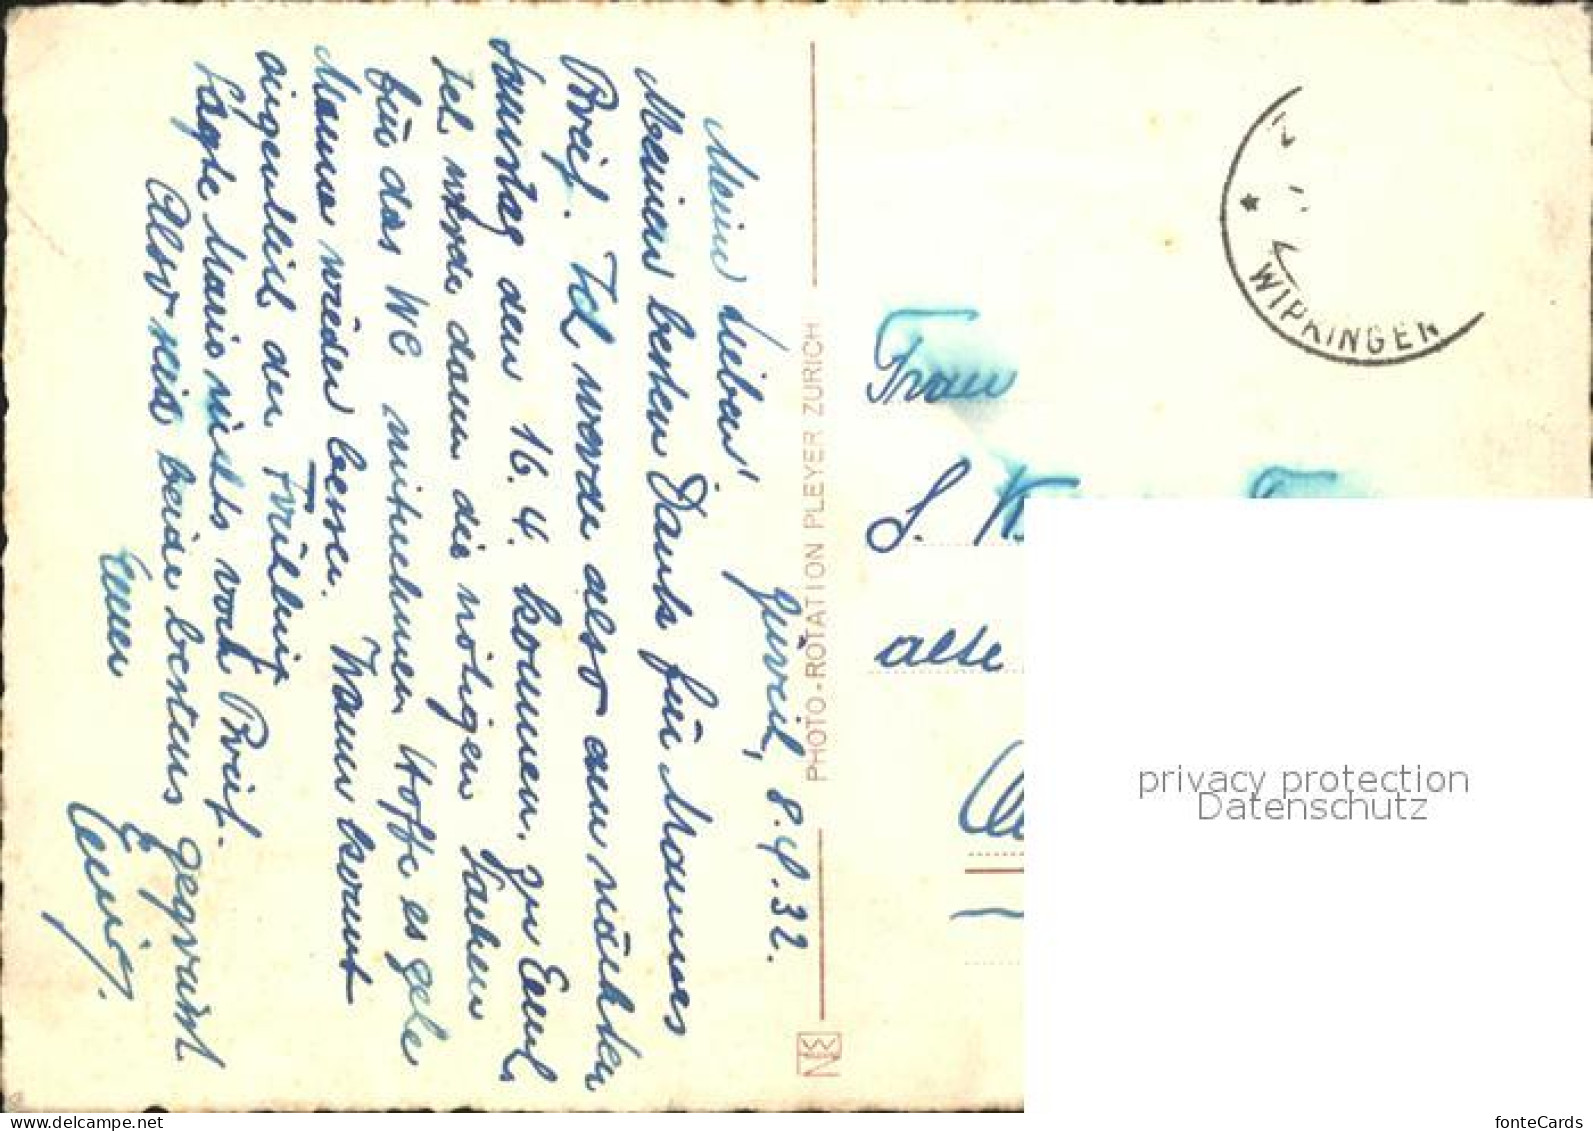 8.4.32.
Meine Lieben!
Meinen besten Dank für Mamas
Brief. Ich werde also am nächsten
Samstag den 16. 4. kommen, zu Euch.
Ich werde dann die nötigen Sachen
für das WC mitnehmen Hoffe es gehe
Mama wieder besser. Wann kommt
eigentlich der Frühling
sagte Mario nichts vom Brief.
Also seid beide bestens gegrüsst
Euer
PHOTO-ROTATION PLEYER ZÜRICH
WIPKINGEN
Frau
S.
alte
privacy protection
Datenschutz
delcampe.net
fonteCards